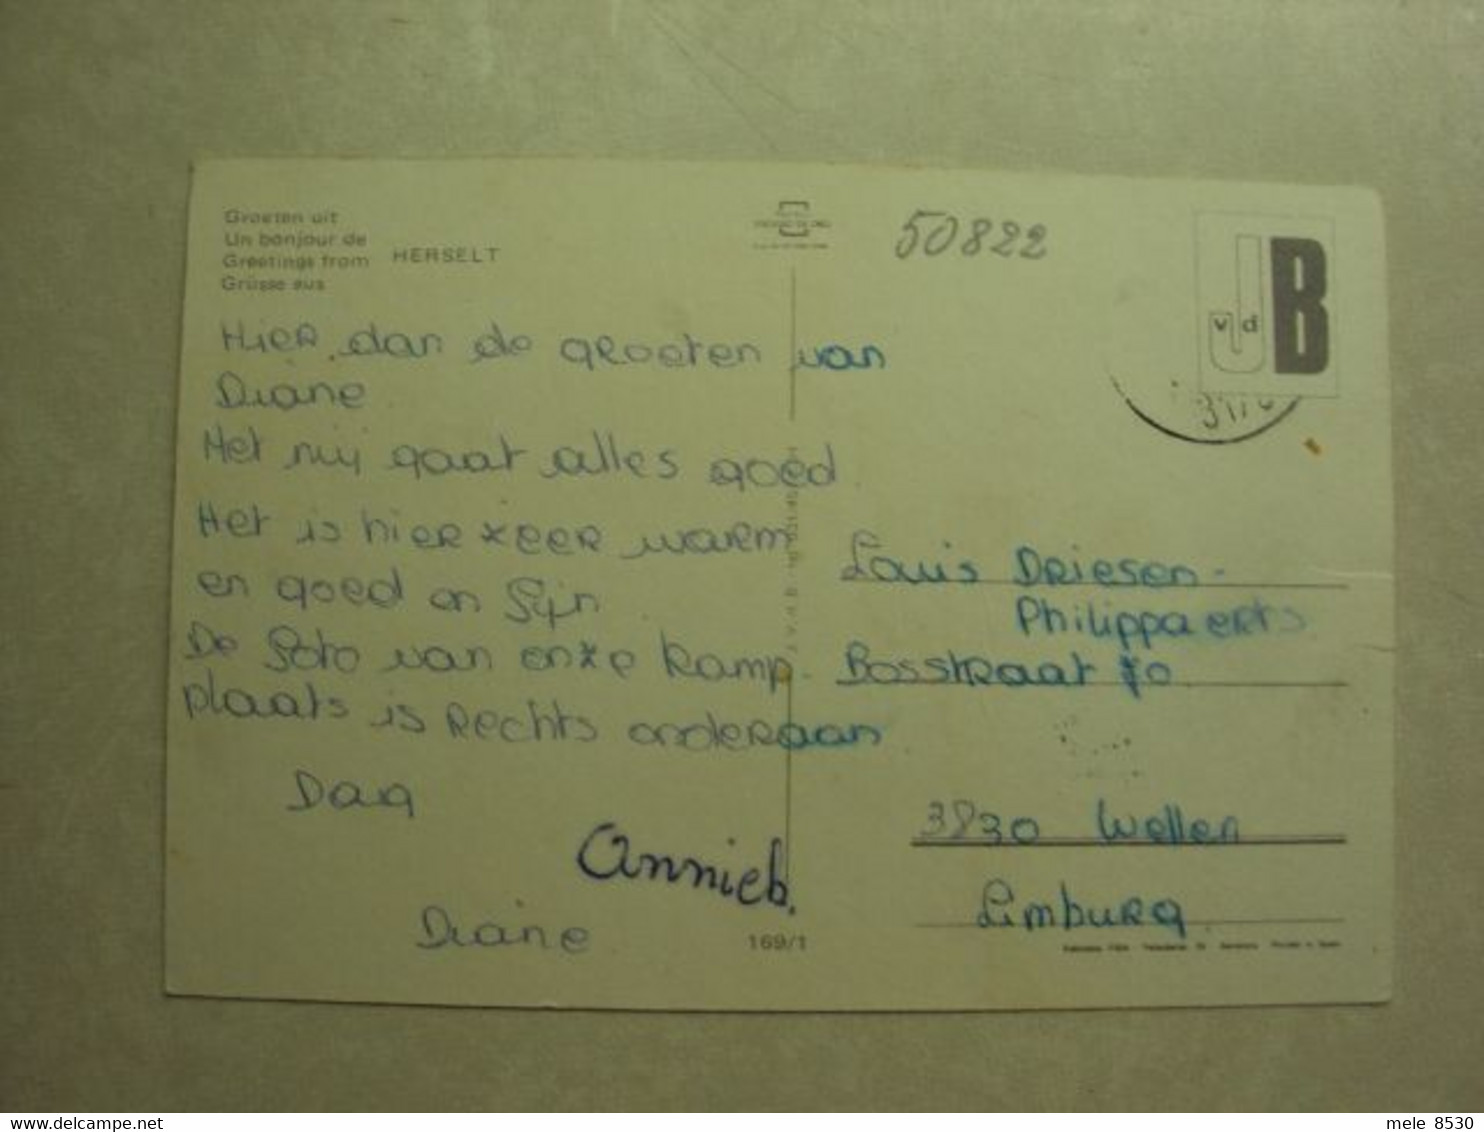 Groeten uit
Un bonjour de
Greetings from
Grüsse aus
HERSELT
50822
v d
JB
Hier dan de groeten van
Diane
Het mij gaat alles goed
Het is hier zeer warm
en goed en fijn
De foto van onze kamp
plaats is rechts onderaan
Dag
Annieb.
Diane
169/1
Louis Driesen-
Philippaerts
Bosstraat 70
3830 Wellen
Limburg
mele 8530